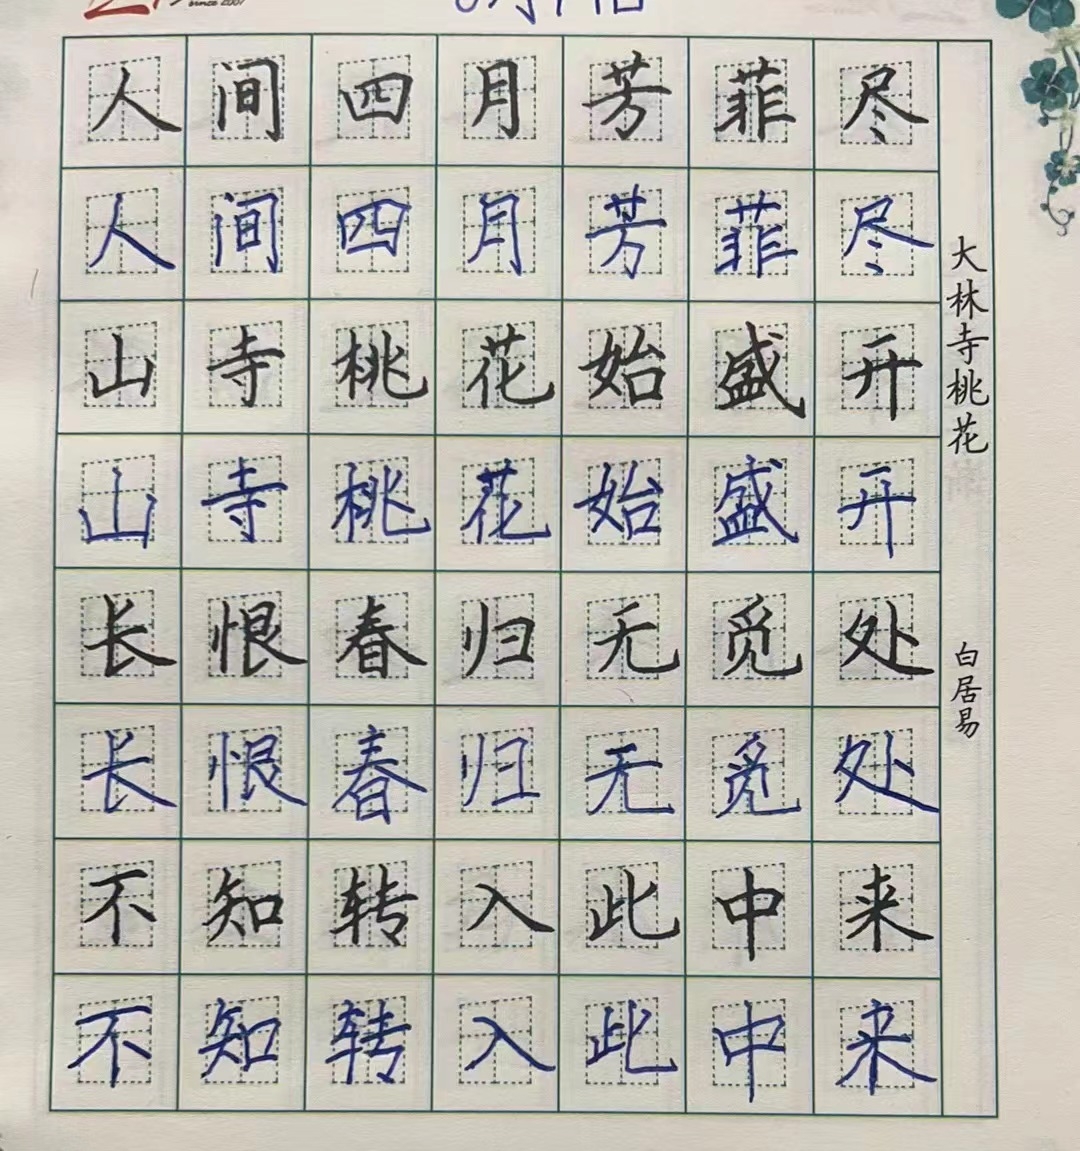 since 2007
人间四月芳菲尽
人间四月芳菲尽
山寺桃花始盛开
山寺桃花始盛开
长恨春归无觅处
长恨春归无觅处
不知转入此中来
不知转入此中来
大林寺桃花
白居易